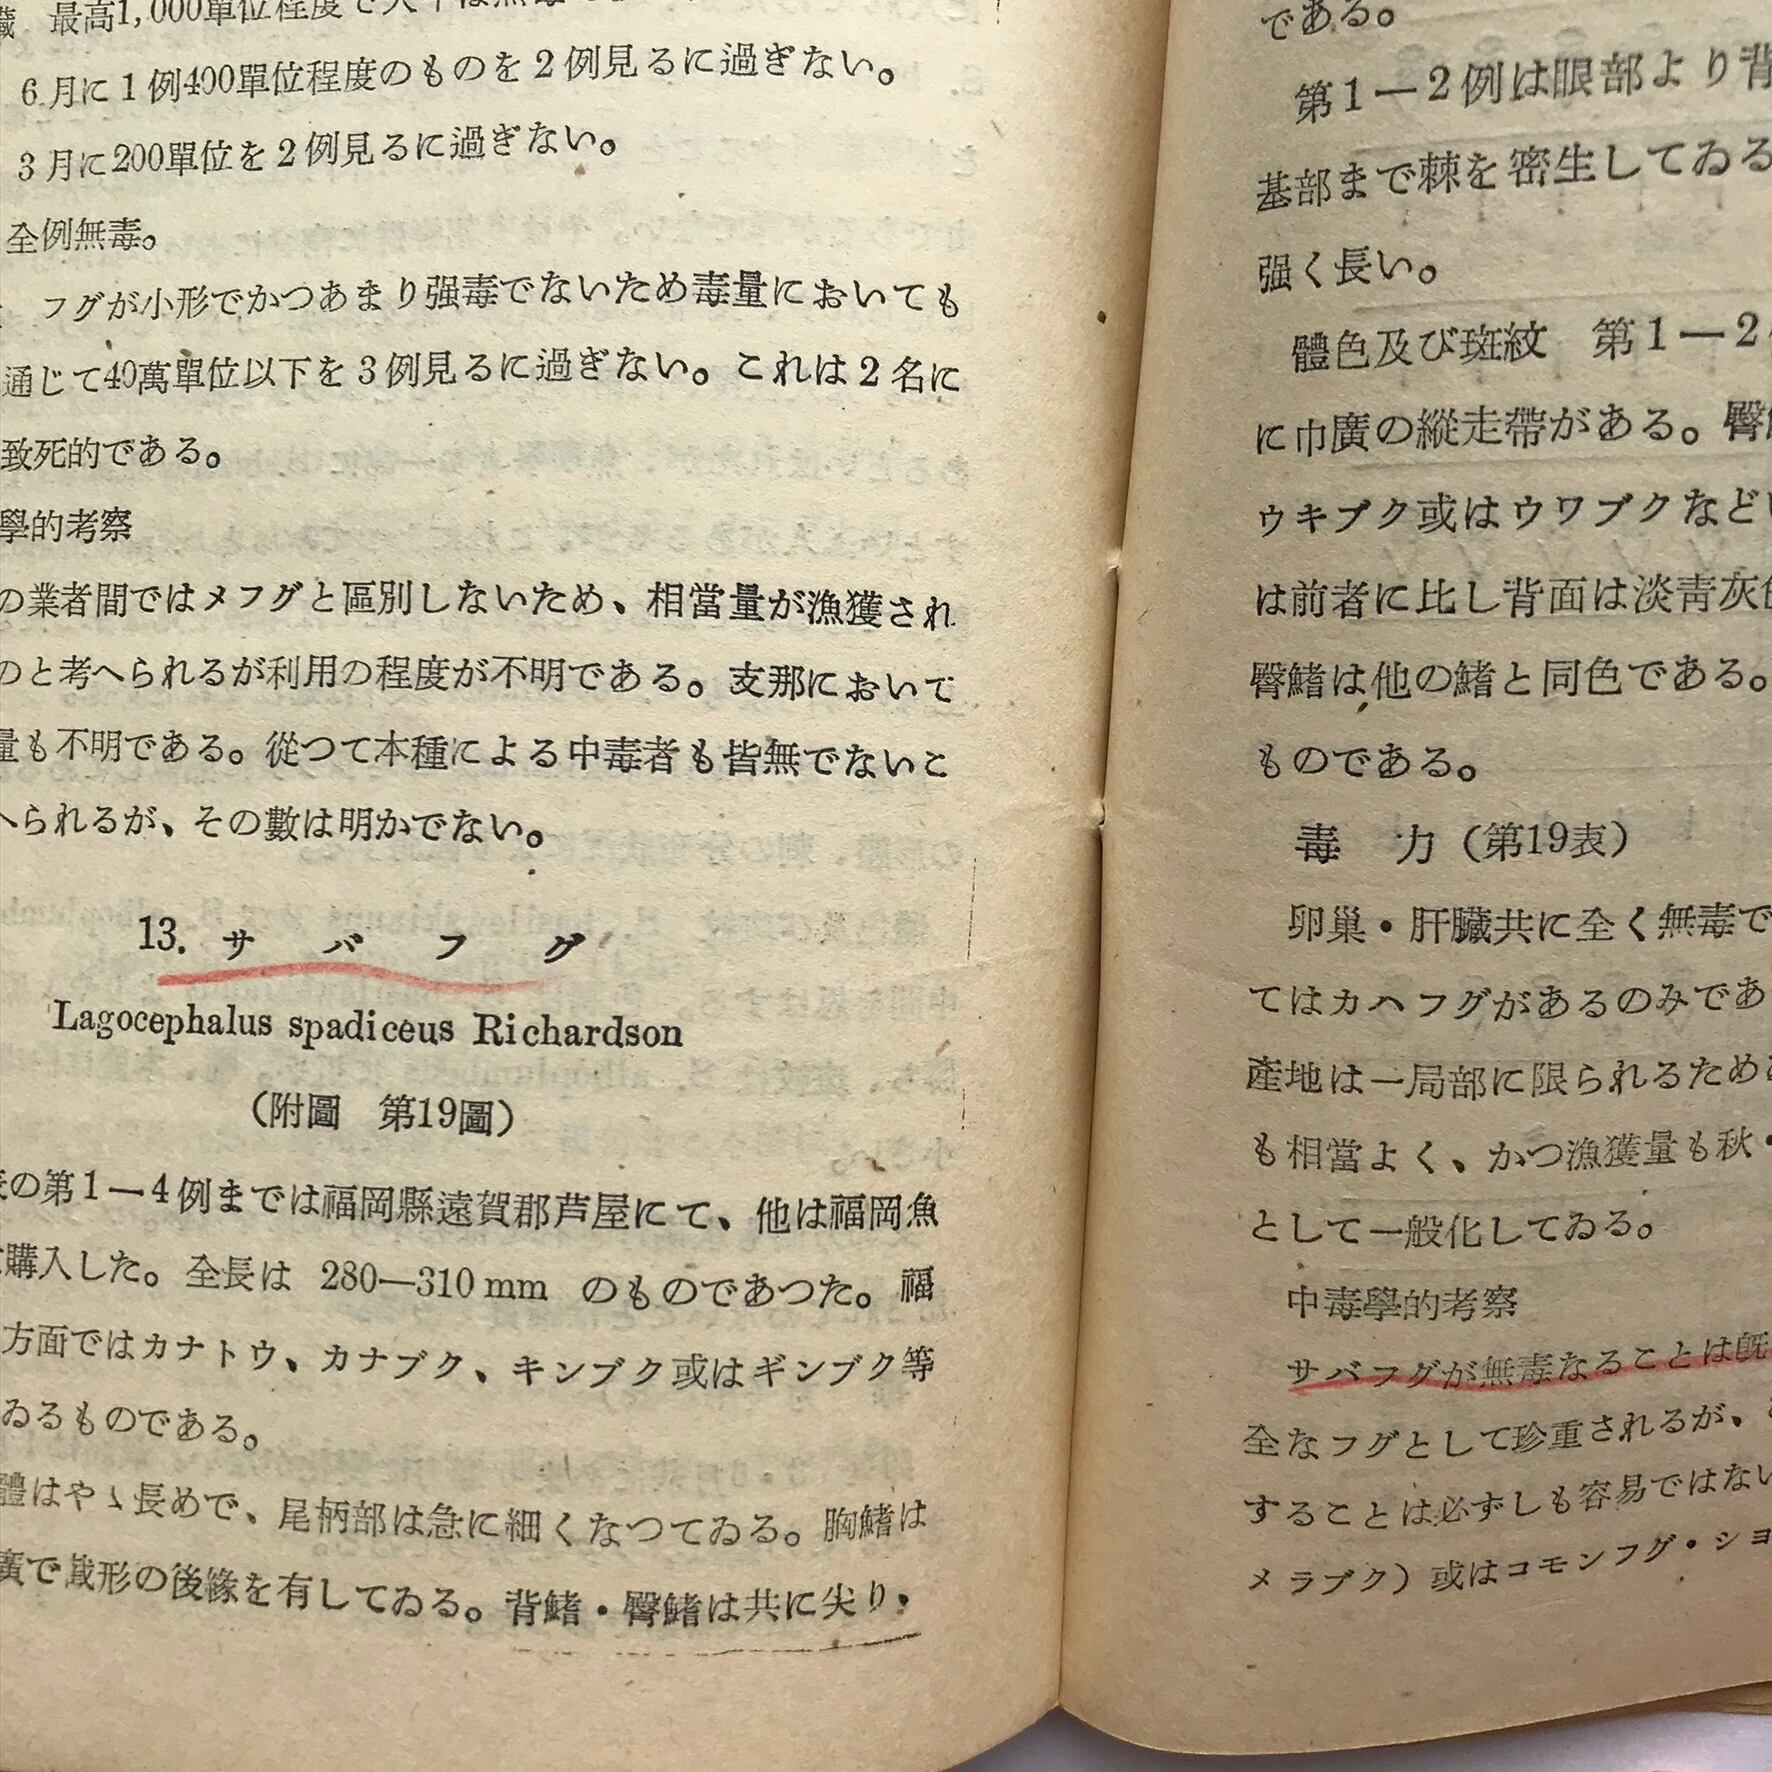 最高1,000單位程度で
6月に1例400單位程度のものを2例見るに過ぎない。
3月に200單位を2例見るに過ぎない。
全例無毒。
フグが小形でかつあまり强毒でないため毒量においても
通じて40萬單位以下を3例見るに過ぎない。これは2名に
致死的である。
學的考察
の業者間ではメフグと區別しないため、相當量が漁獲され
のと考へられるが利用の程度が不明である。支那において
量も不明である。從つて本種による中毒者も皆無でないこ
へられるが、その數は明かでない。
13. サバフグ
Lagocephalus spadiceus Richardson
(附圖 第19圖)
の第1―4例までは福岡縣遠賀郡芦屋にて、他は福岡魚
購入した。全長は 280―310mm のものであつた。福
方面ではカナトウ、カナブク、キンブク或はギンブク等
ゐるものである。
體はやゝ長めで、尾柄部は急に細くなつてゐる。胸鰭は
廣で截形の後緣を有してゐる。背鰭・臀鰭は共に尖り、
である。
第1―2例は眼部より背
基部まで棘を密生してゐる
强く長い。
體色及び斑紋 第1―2
に巾廣の縱走帶がある。臀
ウキブク或はウワブクなどい
は前者に比し背面は淡靑灰色
臀鰭は他の鰭と同色である。
ものである。
毒 力(第19表)
卵巢・肝臟共に全く無毒で
てはカハフグがあるのみであ
產地は一局部に限られるため
も相當よく、かつ漁獲量も秋・
として一般化してゐる。
中毒學的考察
サバフグが無毒なることは既
全なフグとして珍重されるが、
することは必ずしも容易ではない
メラブク)或はコモンフグ・ショ